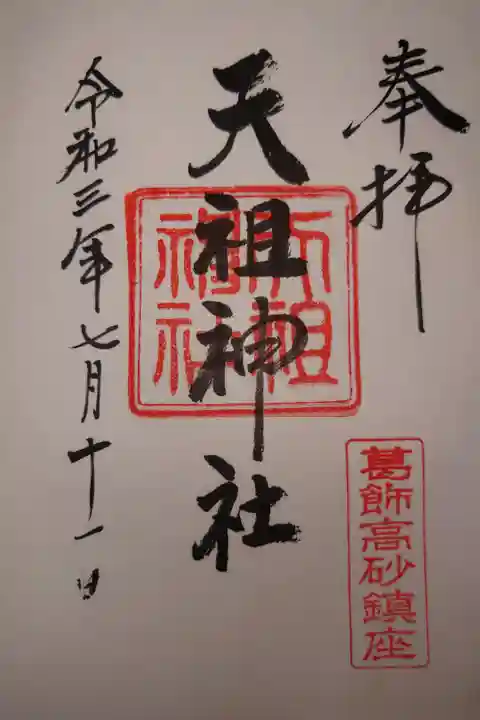 奉拝
葛飾高砂鎮座
天祖神社
天祖神社
令和三年七月十一日